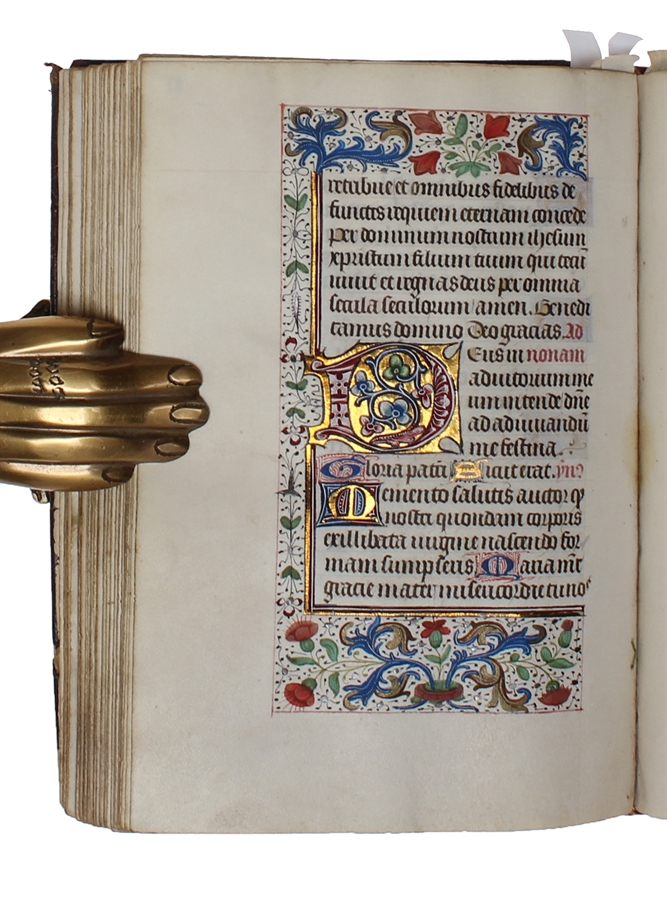 retribue et omnibus fidelibus de
functis requiem eternam concede
Per dominum nostrum ihesum
xpristum filium tuum qui tecum
uiuit et regnas deus per omnia
secula seculorum amen. Benedi
camus domino Deo gracias. Ad
Deus in nonam
adiutorium me
um intende dñe
ad adiuuandū
me festina.
Gloria patri Sicut erat. ymꝰ
Memento salutis auctor qꝫ
nostri quondam corporis
ex illibata uirgine nascendo for
mam sumpseris Maria mr̄
gracie mater misericordie tu nos